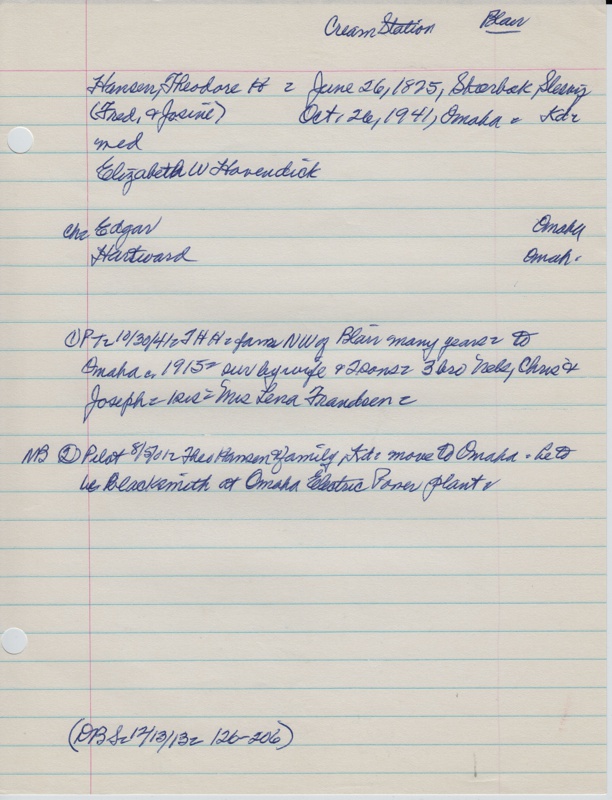 Cream Station Blair
Hansen, Theodore H = June 26, 1875, Skærbæk, Slesvig
(Fred, & Josine) Oct. 26, 1941, Omaha = Kd=
med
Elizabeth W Havendick
Ch= Edgar Omaha
Hartward Omah.
① PT= 10/30/41= THH= farm NW of Blair many years= to
Omaha c. 1915= sur by wife & 2 sons= 3 bro Nels, Chris &
Joseph= 1 sis= Mrs Lena Frandsen=
NB ② Pilot 8/5/01= Theo Hansen & family, Kd= move to Omaha = he to
be Blacksmith at Omaha Electric Power plant
(DBS= 12/13/13= 126-206)